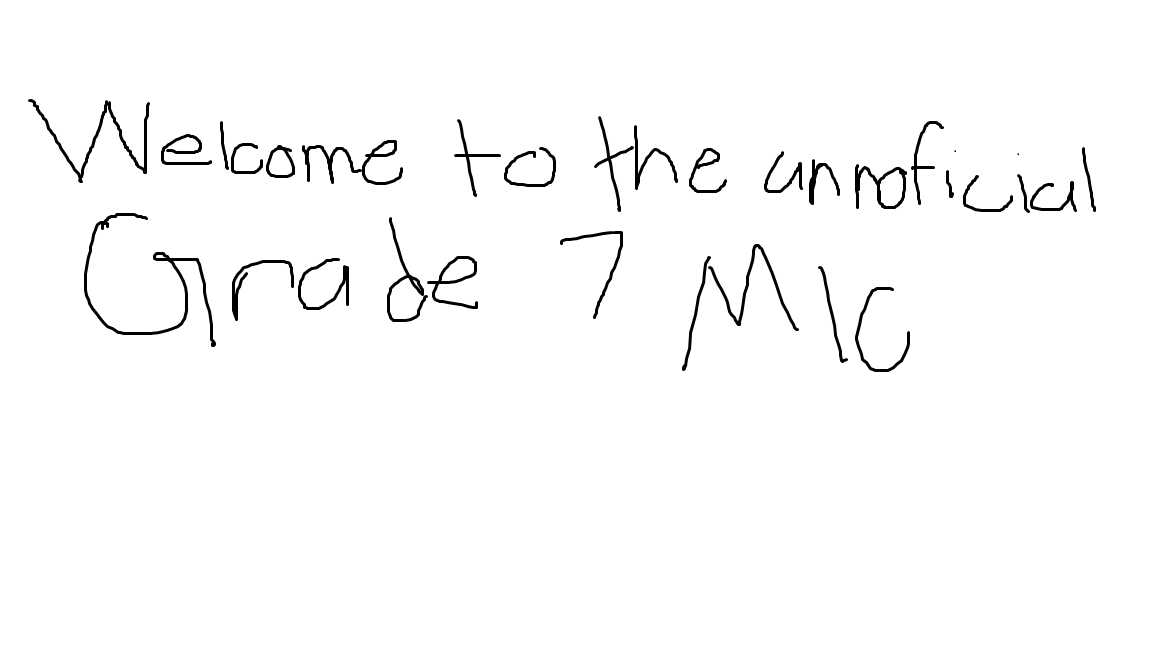 Welcome to the unnoficial
Grade 7 MIC